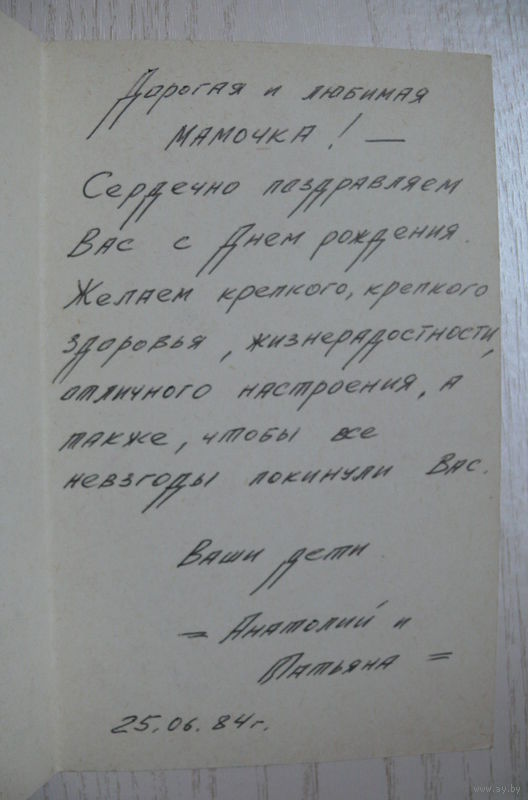 Дорогая и любимая
мамочка! —
Сердечно паздравляем
Вас с Днем рождения.
Желаем крепкого, крепкого
здоровья, жизнерадостности,
отличного настроения, а
также, чтобы все
невзгоды покинули Вас.
Ваши дети
= Анатолий и
Татьяна =
25.06.84г.
www.ay.by